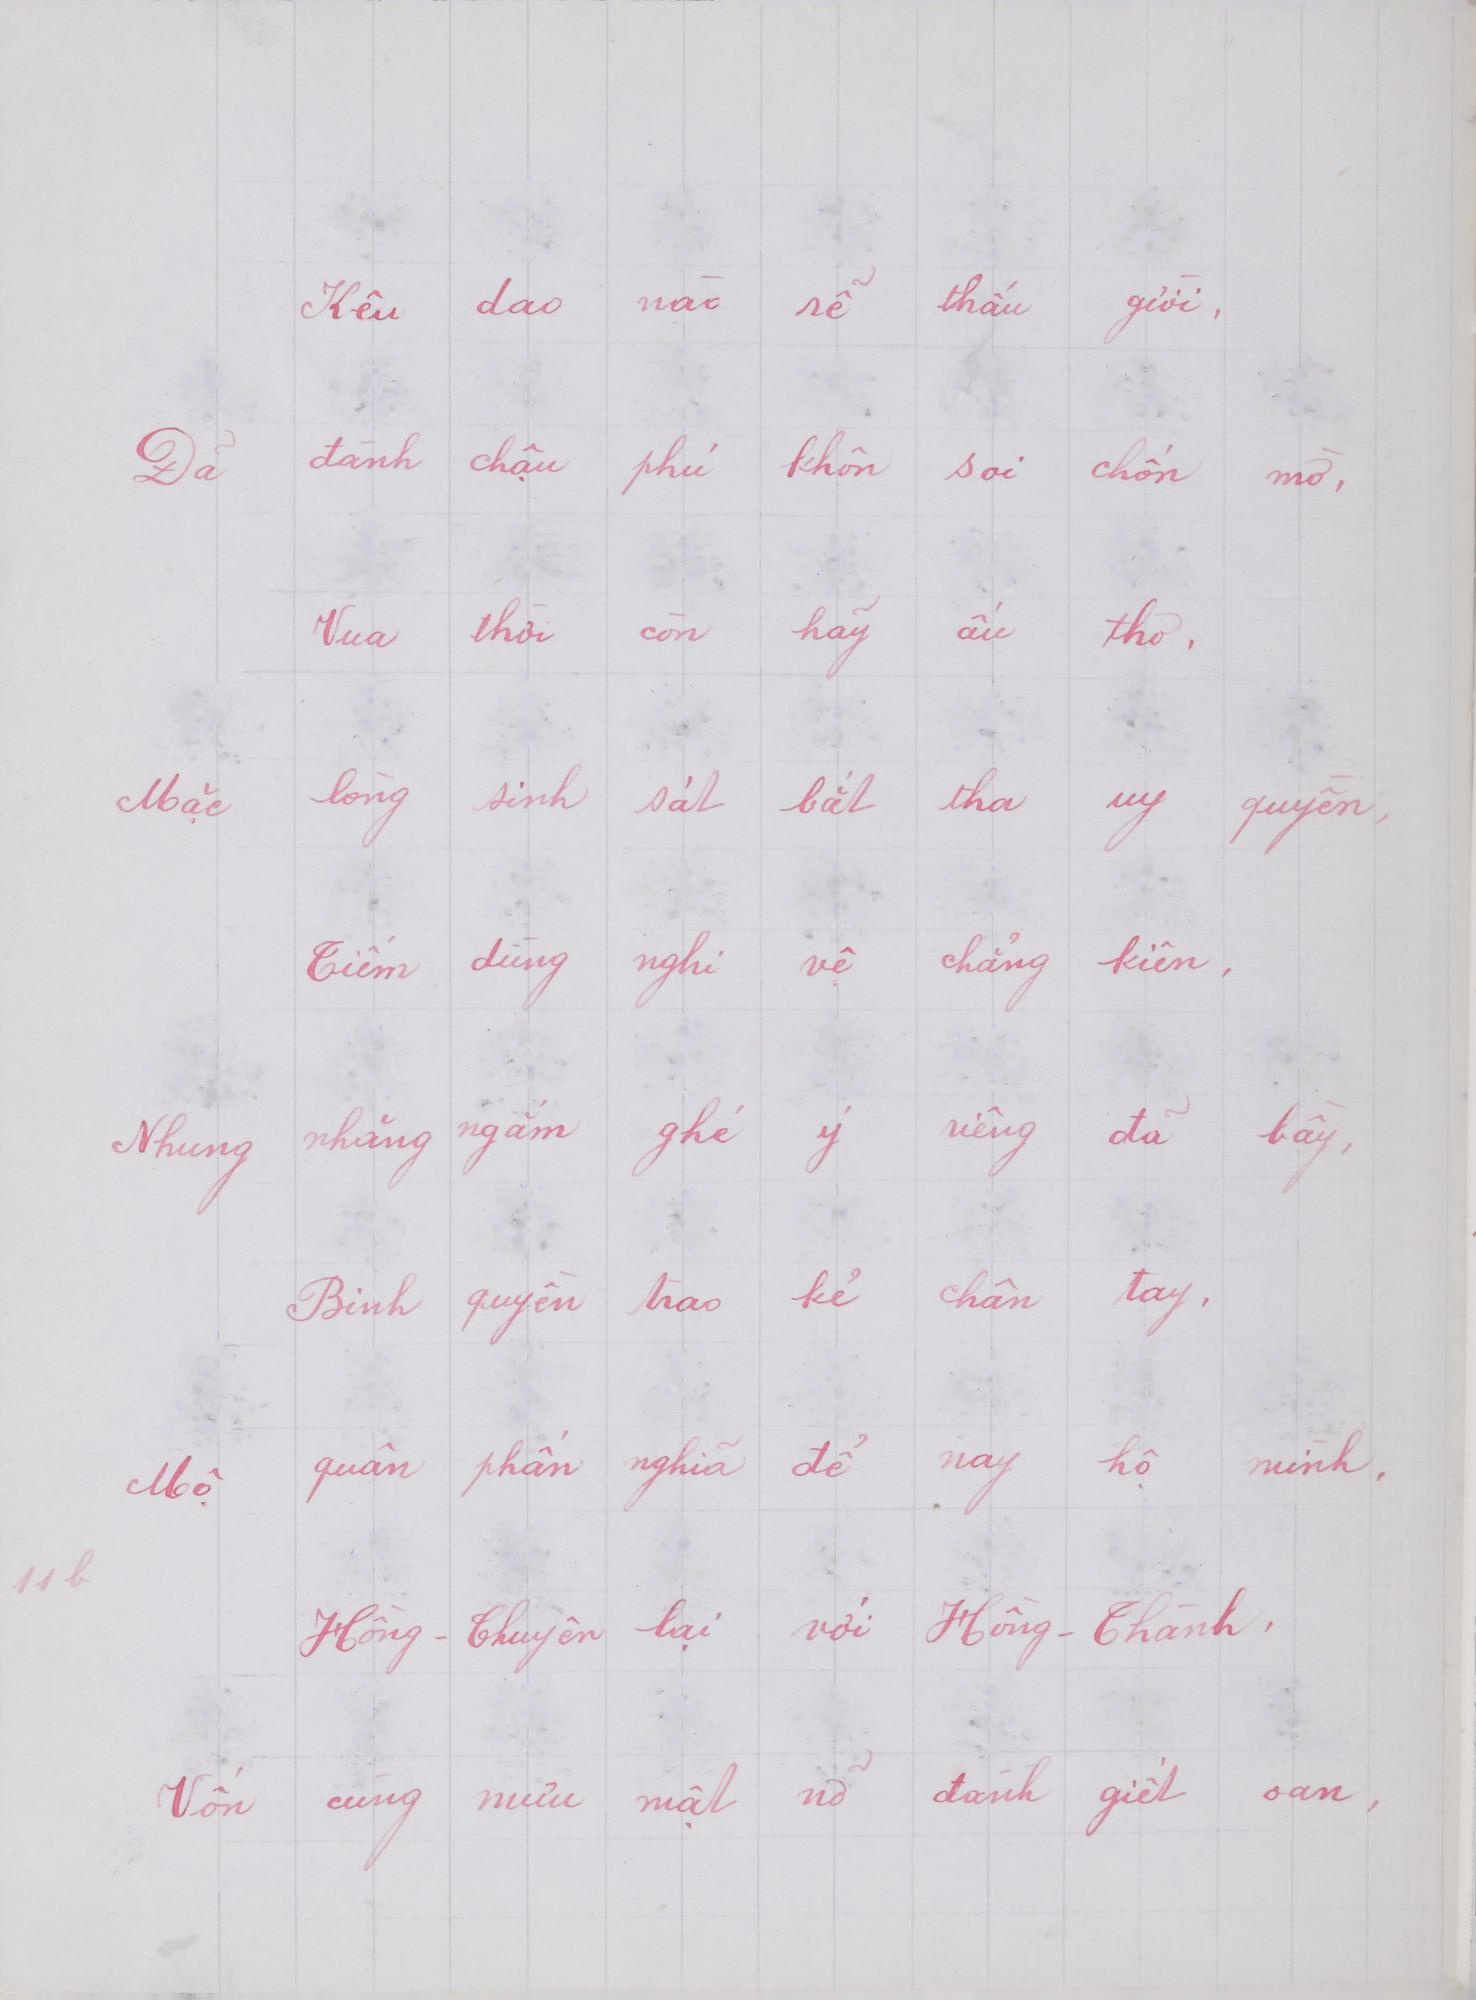 Kêu dao nào rễ thấu giời,
Đã đành chậu phú khôn soi chốn mờ,
Vua thời còn hãy ấu thơ,
Mặc lòng sinh sát bắt tha uy quyền,
Tiếm dùng nghi vệ chẳng kiên,
Nhung nhăng ngắm ghé ý riêng đã bầy,
Binh quyền trao kẻ chân tay,
Mộ quân phấn nghĩa để nay hộ mình,
11b
Hồng-Chuyên lại với Hồng-Thành,
Vốn cùng mưu mật nỡ đành giết oan,